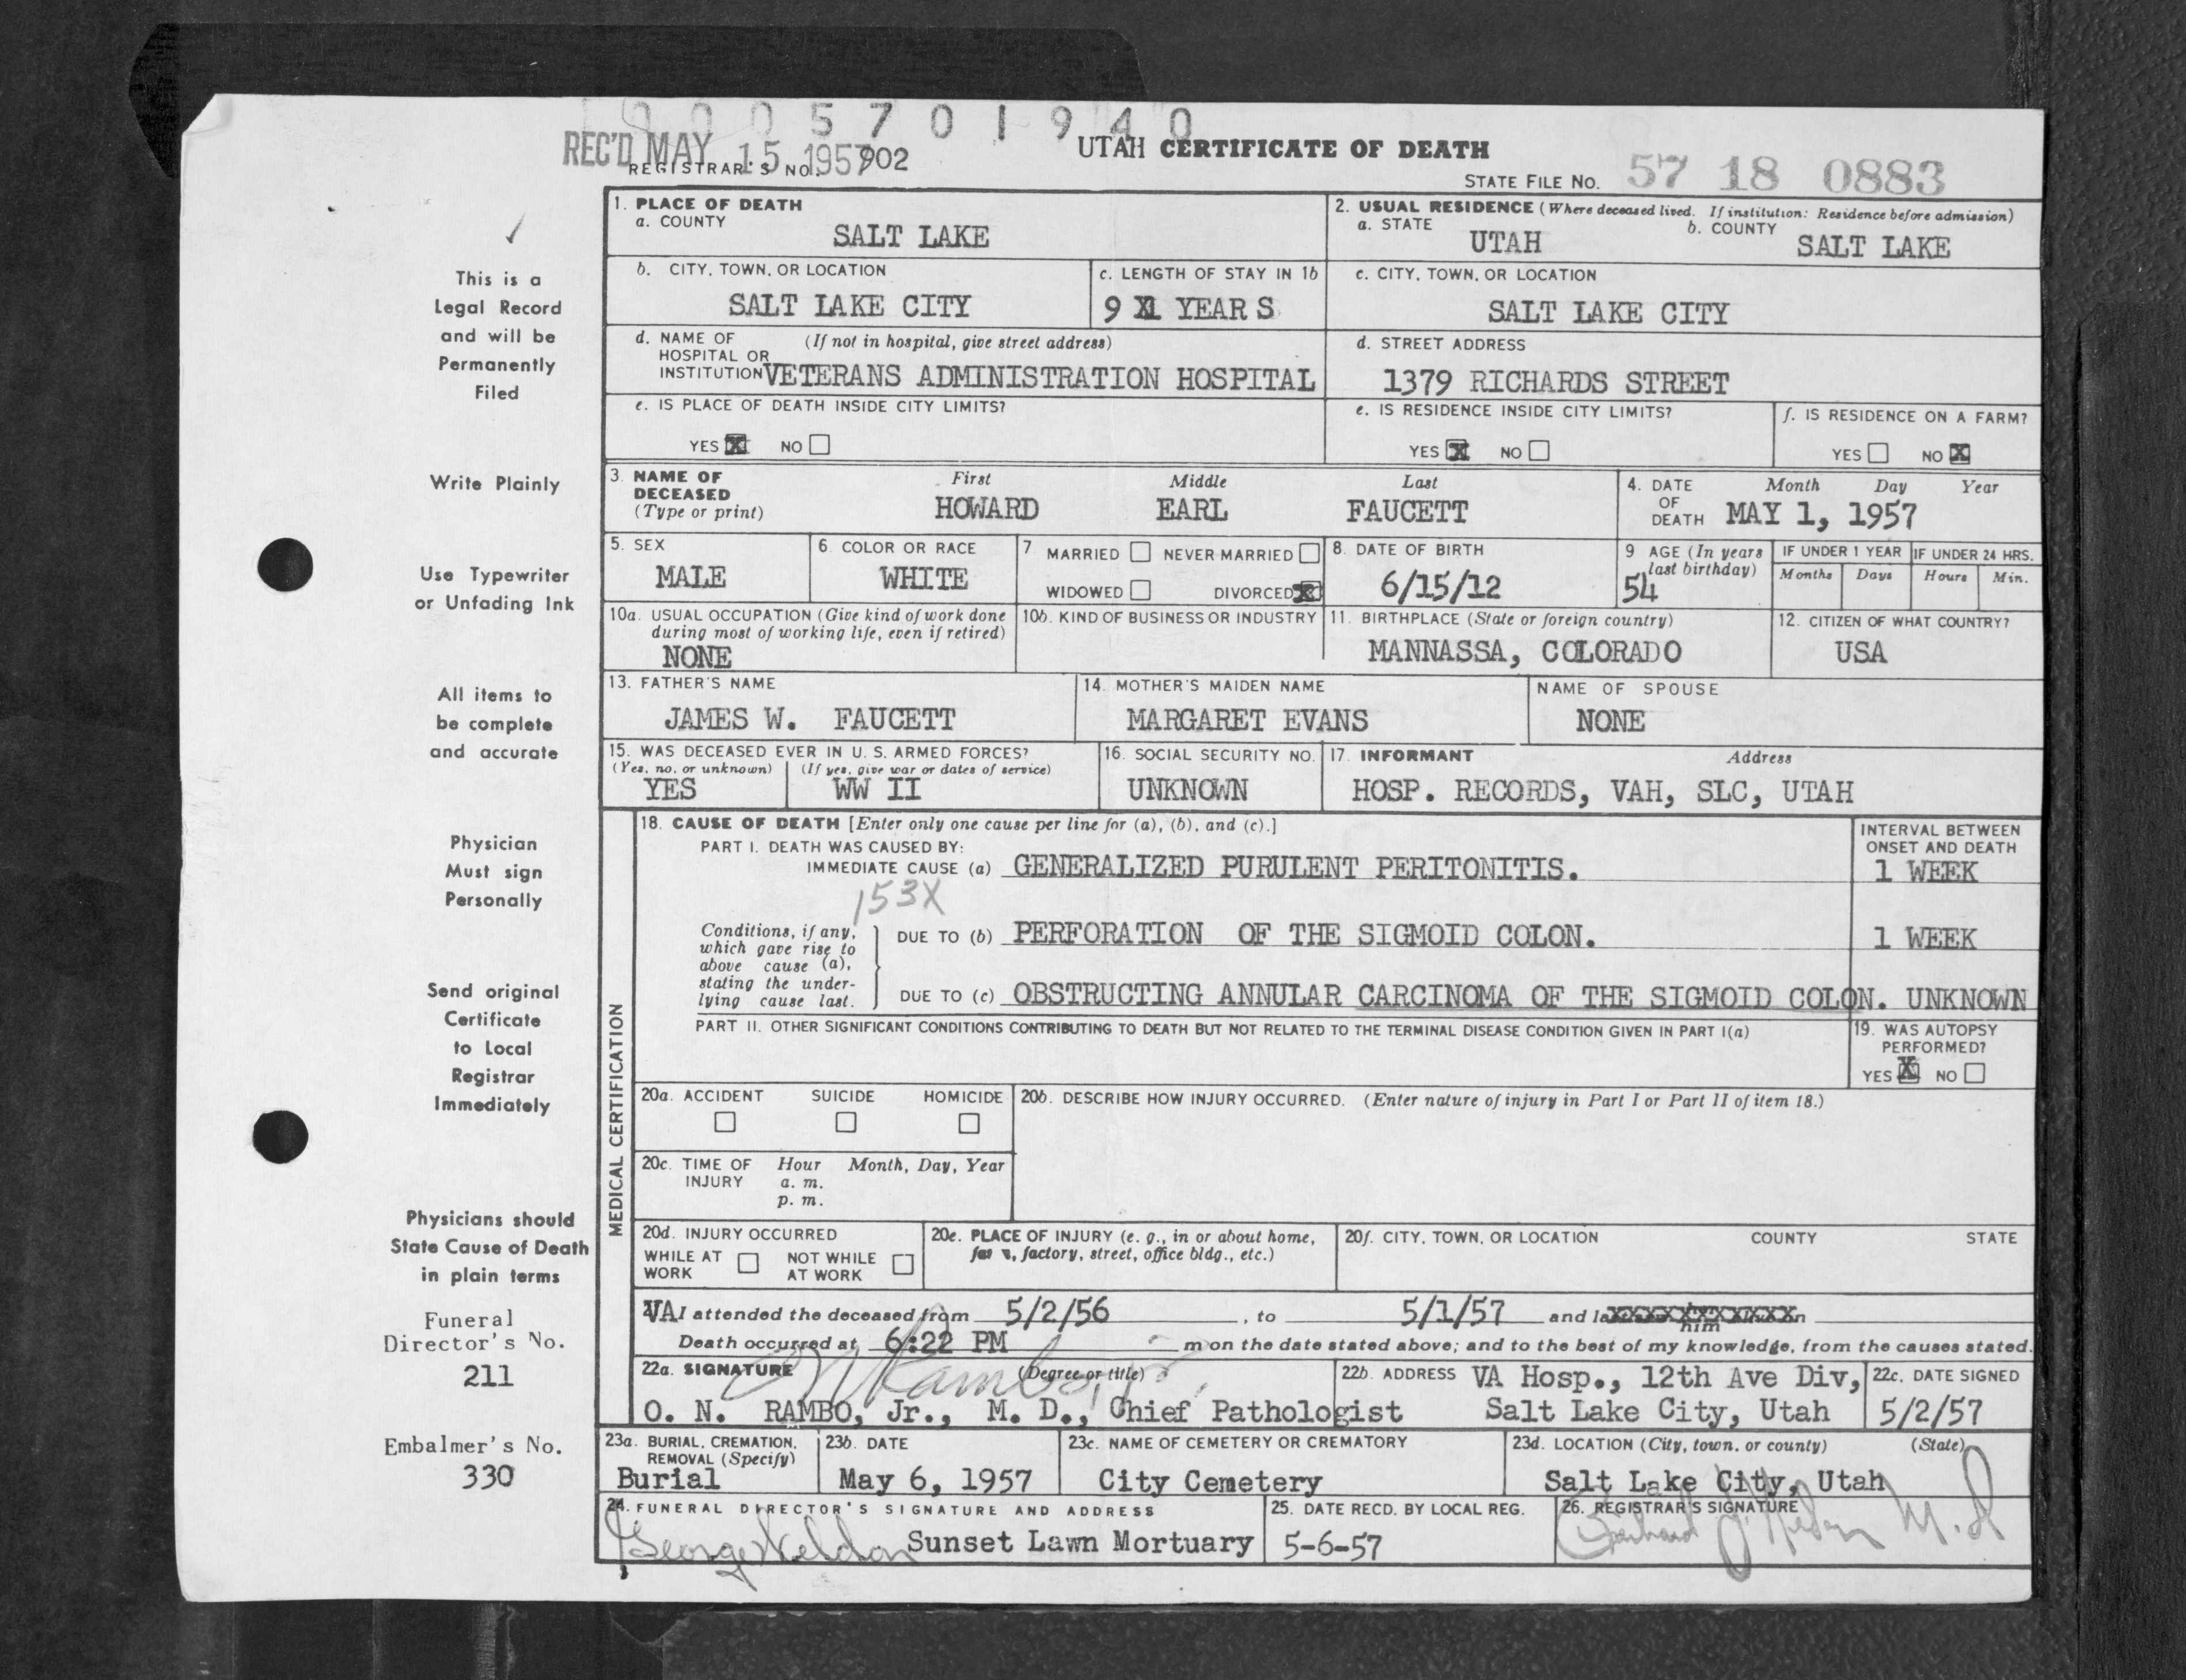 0005701940
REC'D MAY 15 1957
REGISTRAR'S NO. 902
UTAH CERTIFICATE OF DEATH
STATE FILE NO. 57 18 0883
This is a
Legal Record
and will be
Permanently
Filed
Write Plainly
Use Typewriter
or Unfading Ink
All items to
be complete
and accurate
Physician
Must sign
Personally
Send original
Certificate
to Local
Registrar
Immediately
Physicians should
State Cause of Death
in plain terms
Funeral
Director's No.
211
Embalmer's No.
330
1. PLACE OF DEATH
a. COUNTY
SALT LAKE
2. USUAL RESIDENCE (Where deceased lived. If institution: Residence before admission)
a. STATE b. COUNTY
UTAH SALT LAKE
b. CITY, TOWN, OR LOCATION
SALT LAKE CITY
c. LENGTH OF STAY IN 1b
9 YEARS
c. CITY, TOWN, OR LOCATION
SALT LAKE CITY
d. NAME OF (If not in hospital, give street address)
HOSPITAL OR
INSTITUTION VETERANS ADMINISTRATION HOSPITAL
d. STREET ADDRESS
1379 RICHARDS STREET
e. IS PLACE OF DEATH INSIDE CITY LIMITS?
YES X NO
e. IS RESIDENCE INSIDE CITY LIMITS?
YES X NO
f. IS RESIDENCE ON A FARM?
YES NO X
3. NAME OF DECEASED (Type or print)
First Middle Last
HOWARD EARL FAUCETT
4. DATE OF DEATH
Month Day Year
MAY 1, 1957
5. SEX
MALE
6. COLOR OR RACE
WHITE
7 MARRIED NEVER MARRIED
WIDOWED DIVORCED X
8. DATE OF BIRTH
6/15/12
9 AGE (In years last birthday)
54
IF UNDER 1 YEAR IF UNDER 24 HRS.
Months Days Hours Min.
10a. USUAL OCCUPATION (Give kind of work done
during most of working life, even if retired)
NONE
10b. KIND OF BUSINESS OR INDUSTRY
11. BIRTHPLACE (State or foreign country)
MANNASSA, COLORADO
12. CITIZEN OF WHAT COUNTRY?
USA
13. FATHER'S NAME
JAMES W. FAUCETT
14. MOTHER'S MAIDEN NAME
MARGARET EVANS
NAME OF SPOUSE
NONE
15. WAS DECEASED EVER IN U. S. ARMED FORCES?
(Yes, no, or unknown) (If yes, give war or dates of service)
YES WW II
16. SOCIAL SECURITY NO.
UNKNOWN
17. INFORMANT Address
HOSP. RECORDS, VAH, SLC, UTAH
MEDICAL CERTIFICATION
18. CAUSE OF DEATH [Enter only one cause per line for (a), (b), and (c).]
INTERVAL BETWEEN
ONSET AND DEATH
PART I. DEATH WAS CAUSED BY:
IMMEDIATE CAUSE (a) GENERALIZED PURULENT PERITONITIS. 1 WEEK
153X
Conditions, if any,
which gave rise to
above cause (a),
stating the under-
lying cause last.
DUE TO (b) PERFORATION OF THE SIGMOID COLON. 1 WEEK
DUE TO (c) OBSTRUCTING ANNULAR CARCINOMA OF THE SIGMOID COLON. UNKNOWN
PART II. OTHER SIGNIFICANT CONDITIONS CONTRIBUTING TO DEATH BUT NOT RELATED TO THE TERMINAL DISEASE CONDITION GIVEN IN PART I(a)
19. WAS AUTOPSY
PERFORMED?
YES X NO
20a. ACCIDENT SUICIDE HOMICIDE
20b. DESCRIBE HOW INJURY OCCURRED. (Enter nature of injury in Part I or Part II of item 18.)
20c. TIME OF INJURY Hour Month, Day, Year
a. m.
p. m.
20d. INJURY OCCURRED
WHILE AT WORK NOT WHILE AT WORK
20e. PLACE OF INJURY (e. g., in or about home,
factory, street, office bldg., etc.)
20f. CITY, TOWN, OR LOCATION COUNTY STATE
VA I attended the deceased from 5/2/56, to 5/1/57 and
him
Death occurred at 6:22 PM m on the date stated above; and to the best of my knowledge, from the causes stated.
22a. SIGNATURE (Degree or title)
O. N. RAMBO, Jr., M. D., Chief Pathologist
22b. ADDRESS VA Hosp., 12th Ave Div,
Salt Lake City, Utah
22c. DATE SIGNED
5/2/57
23a. BURIAL, CREMATION,
REMOVAL (Specify)
Burial
23b. DATE
May 6, 1957
23c. NAME OF CEMETERY OR CREMATORY
City Cemetery
23d. LOCATION (City, town, or county) (State)
Salt Lake City, Utah
24. FUNERAL DIRECTOR'S SIGNATURE AND ADDRESS
George Weldon Sunset Lawn Mortuary
25. DATE RECD. BY LOCAL REG.
5-6-57
26. REGISTRAR'S SIGNATURE
M.D